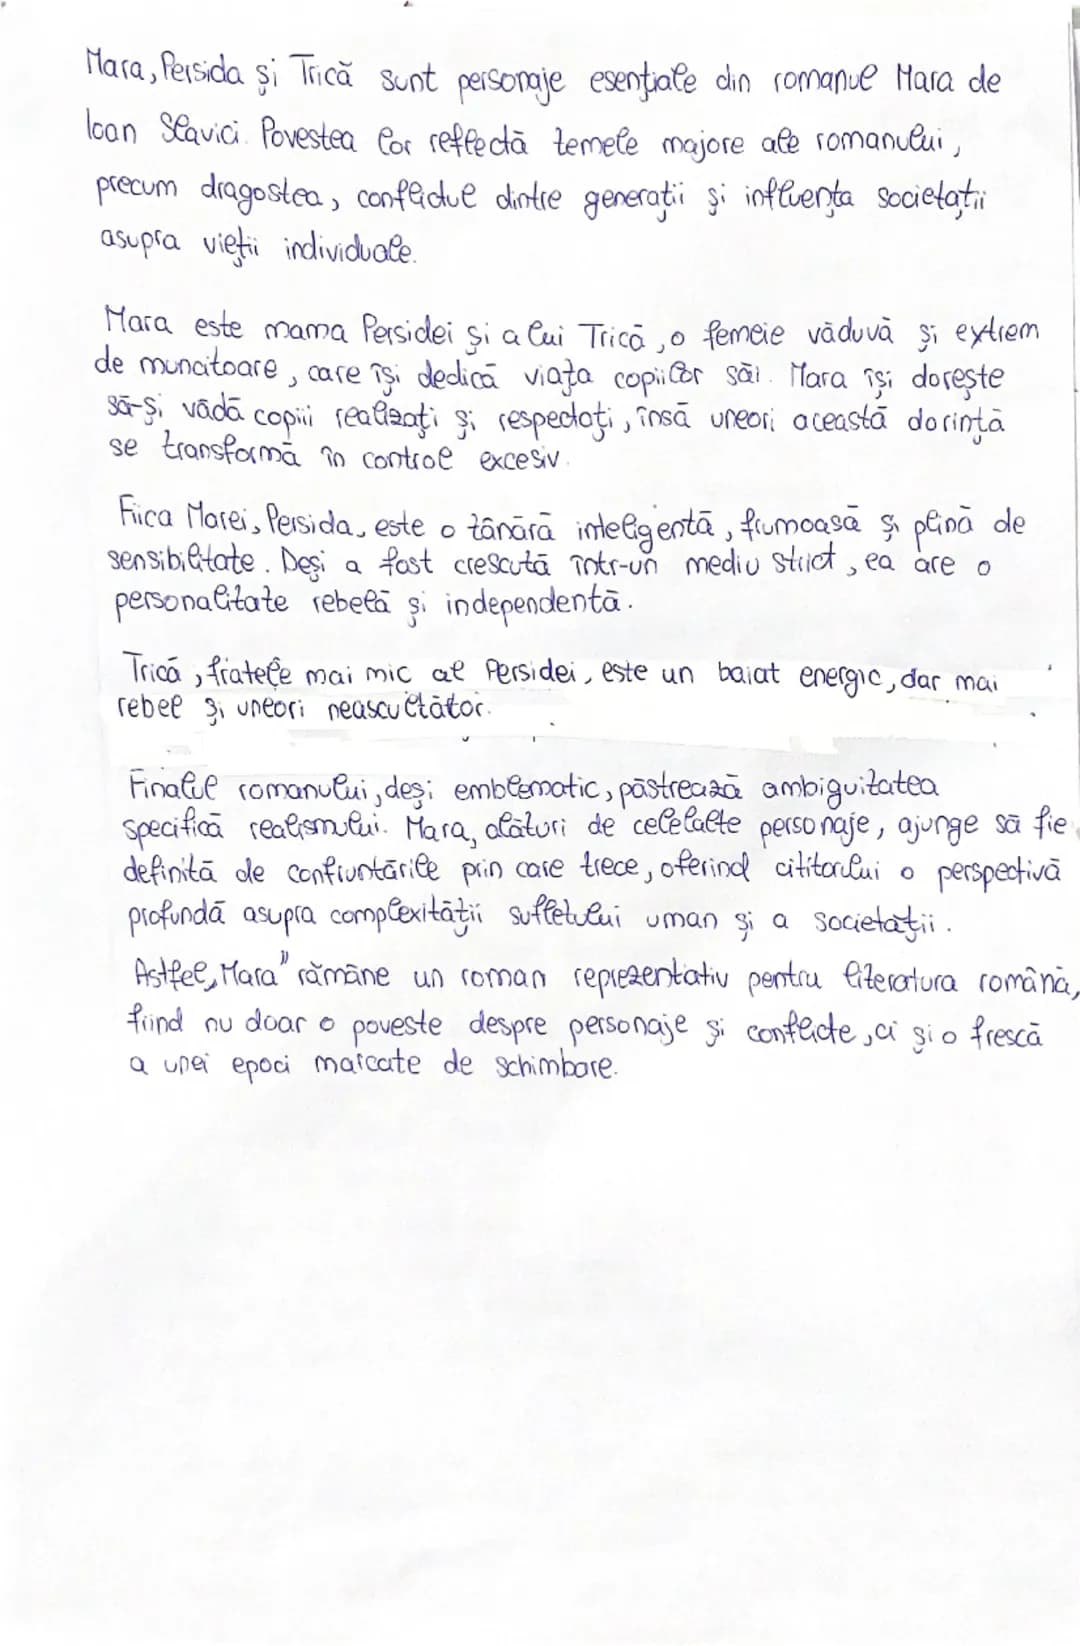 Mara, Persida și Trică sunt personaje esențiale din romanul Mara de
Ioan Slavici. Povestea lor reflectă temele majore ale romanului,
precum dragostea, conflictul dintre generații și influența societății
asupra vieții individuale.
Mara este mama Persidei și a lui Trică, o femeie văduvă și extrem
de muncitoare, care își dedică viața copiilor săi. Mara își dorește
să-și vadă copiii realizați și respectați, însă uneori această dorință
se transformă în control excesiv.
Fiica Marei, Persida, este o tânără inteligentă, frumoasă și plină de
sensibilitate. Deși a fost crescută într-un mediu strict, ea are o
personalitate rebelă și independentă.
Trică, fratele mai mic al Persidei, este un baiat energic, dar mai
rebel și uneori neascultător.
Finalul romanului, deși emblematic, păstrează ambiguitatea
specifică realismului. Mara, alături de celelalte personaje, ajunge să fie
definită de confruntările prin care trece, oferind cititorului o perspectivă
profundă asupra complexității sufletului uman și a societații.
Astfel, „Mara” rămâne un roman reprezentativ pentru literatura română,
fiind nu doar o poveste despre personaje și conflicte, ci și o frescă
a unei epoci marcate de schimbare.